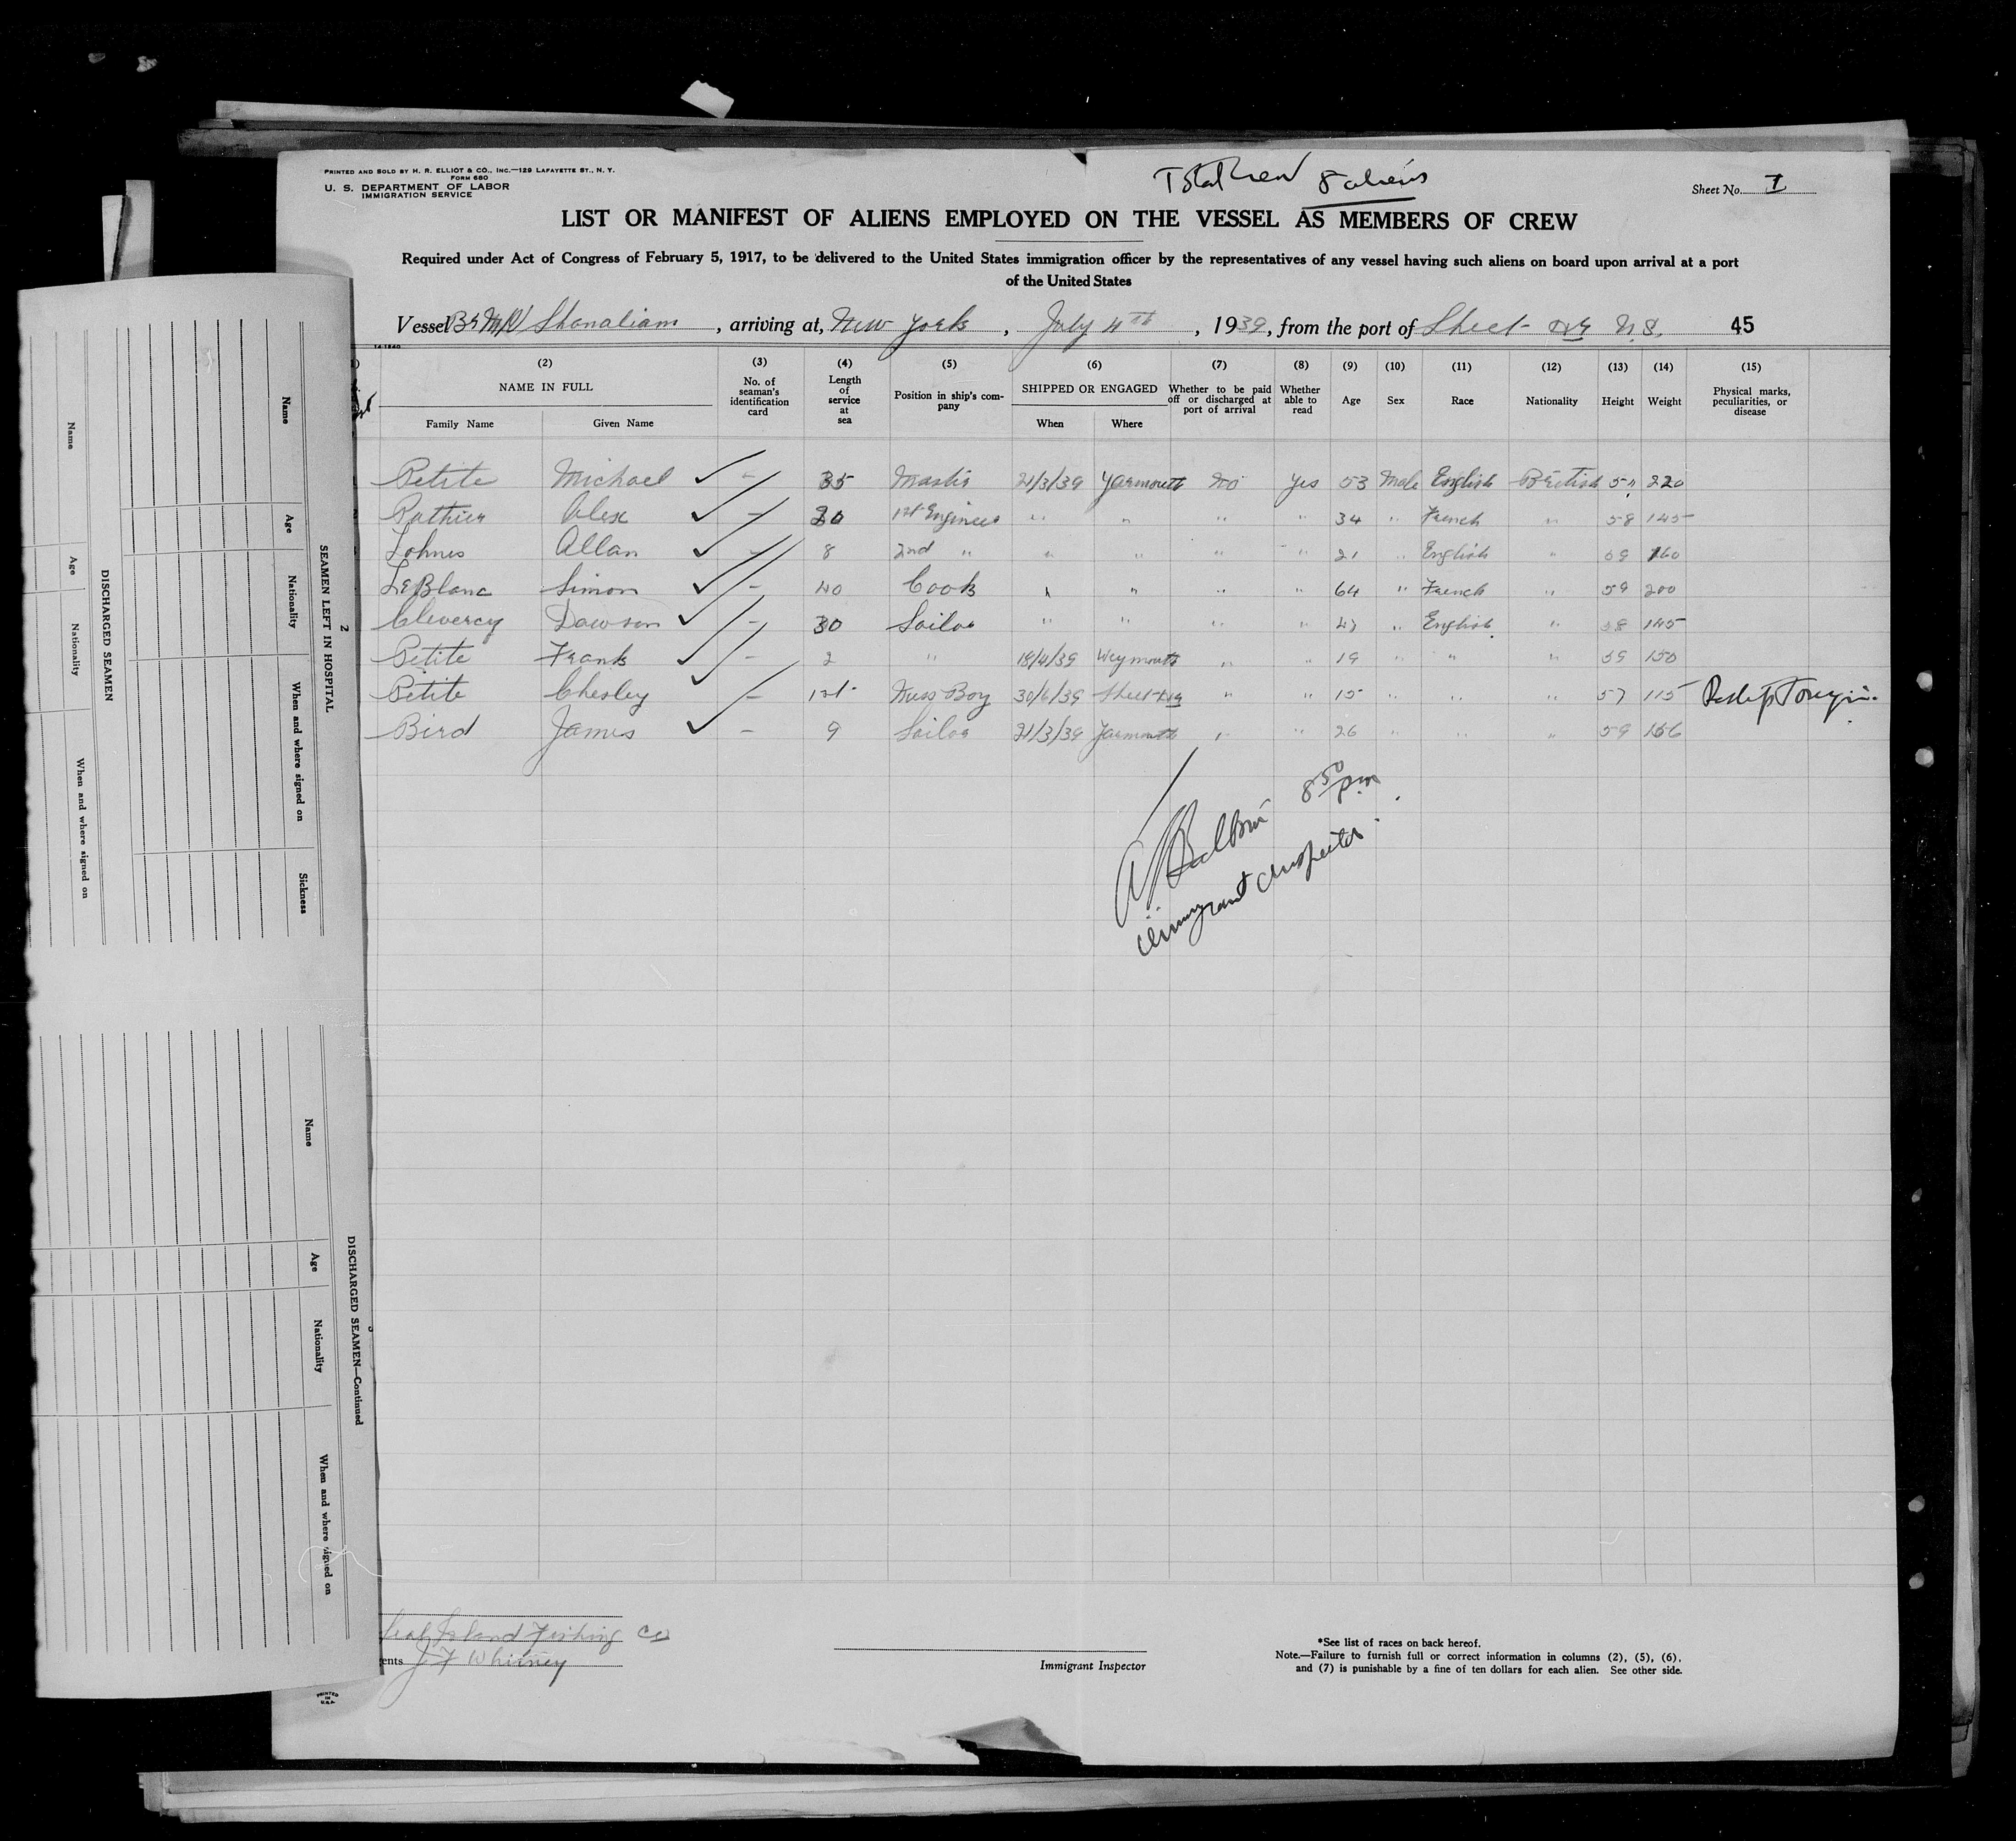 PRINTED AND SOLD BY H. R. ELLIOT & CO., INC.—129 LAFAYETTE ST., N. Y.
FORM 680
U. S. DEPARTMENT OF LABOR
IMMIGRATION SERVICE
Total Crew 8 aliens
Sheet No. 1
LIST OR MANIFEST OF ALIENS EMPLOYED ON THE VESSEL AS MEMBERS OF CREW
Required under Act of Congress of February 5, 1917, to be delivered to the United States immigration officer by the representatives of any vessel having such aliens on board upon arrival at a port
of the United States
Vessel Br M/V Shonaliam, arriving at, New York, July 4th, 1939, from the port of Sheet Hr N.S. 45
14-1240
(2) (3) (4) (5) (6) (7) (8) (9) (10) (11) (12) (13) (14) (15)
NAME IN FULL
Family Name Given Name
No. of seaman's identification card
Length of service at sea
Position in ship's company
SHIPPED OR ENGAGED
When Where
Whether to be paid off or discharged at port of arrival
Whether able to read
Age
Sex
Race
Nationality
Height
Weight
Physical marks, peculiarities, or disease
Petite Michael ✓ – 35 Master 21/3/39 Yarmouth No Yes 53 Male English British 5 11 220
Alex ✓ – 20 1st Engineer " " " " 34 " French " 5 8 145
Lohnes Allan ✓ – 8 2nd " " " " " 21 " English " 5 9 160
LeBlanc Simon ✓ – 40 Cook " " " " 64 " French " 5 9 200
Clevercy Dawson ✓ – 30 Sailor " " " " " English " 5 8 145
Petite Frank ✓ – 2 " 18/4/39 Weymouth " " 19 " " " 5 9 150
Petite Chesley ✓ – 1st Mess Boy 30/6/39 Sheet Hr " " 15 " " " 5 7 115
Bird James ✓ – 9 Sailor 21/3/39 Yarmouth " " 26 " " " 5 9 156
8 50 pm
Immigrant Inspector
Island Fishing Co
ents J F Whitney
Immigrant Inspector
*See list of races on back hereof.
Note.—Failure to furnish full or correct information in columns (2), (5), (6),
and (7) is punishable by a fine of ten dollars for each alien. See other side.
PRINTED
IN
U.S.A.
2
SEAMEN LEFT IN HOSPITAL
Name Age Nationality When and where signed on Sickness
DISCHARGED SEAMEN
Name Age Nationality When and where signed on
3
DISCHARGED SEAMEN—Continued
Name Age Nationality When and where signed on